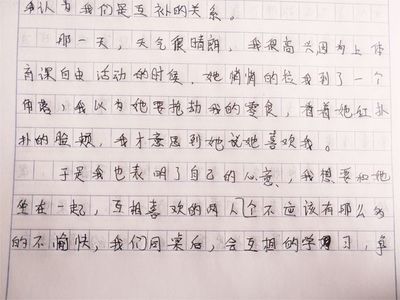 我认为我们是互补的关系。
那一天，天气很晴朗，我很高兴因为上体
育课自由活动的时候，她悄悄的拉我到了一个
角落，我以为她要抢劫我的零食，看着她红扑
扑的脸颊，我才意思到她说她喜欢我。
于是我也表明了自己的心意，我想要和她
坐在一起，互相喜欢的两人个不应该有那么多
的不愉快，我们同桌后，会互相的学习，